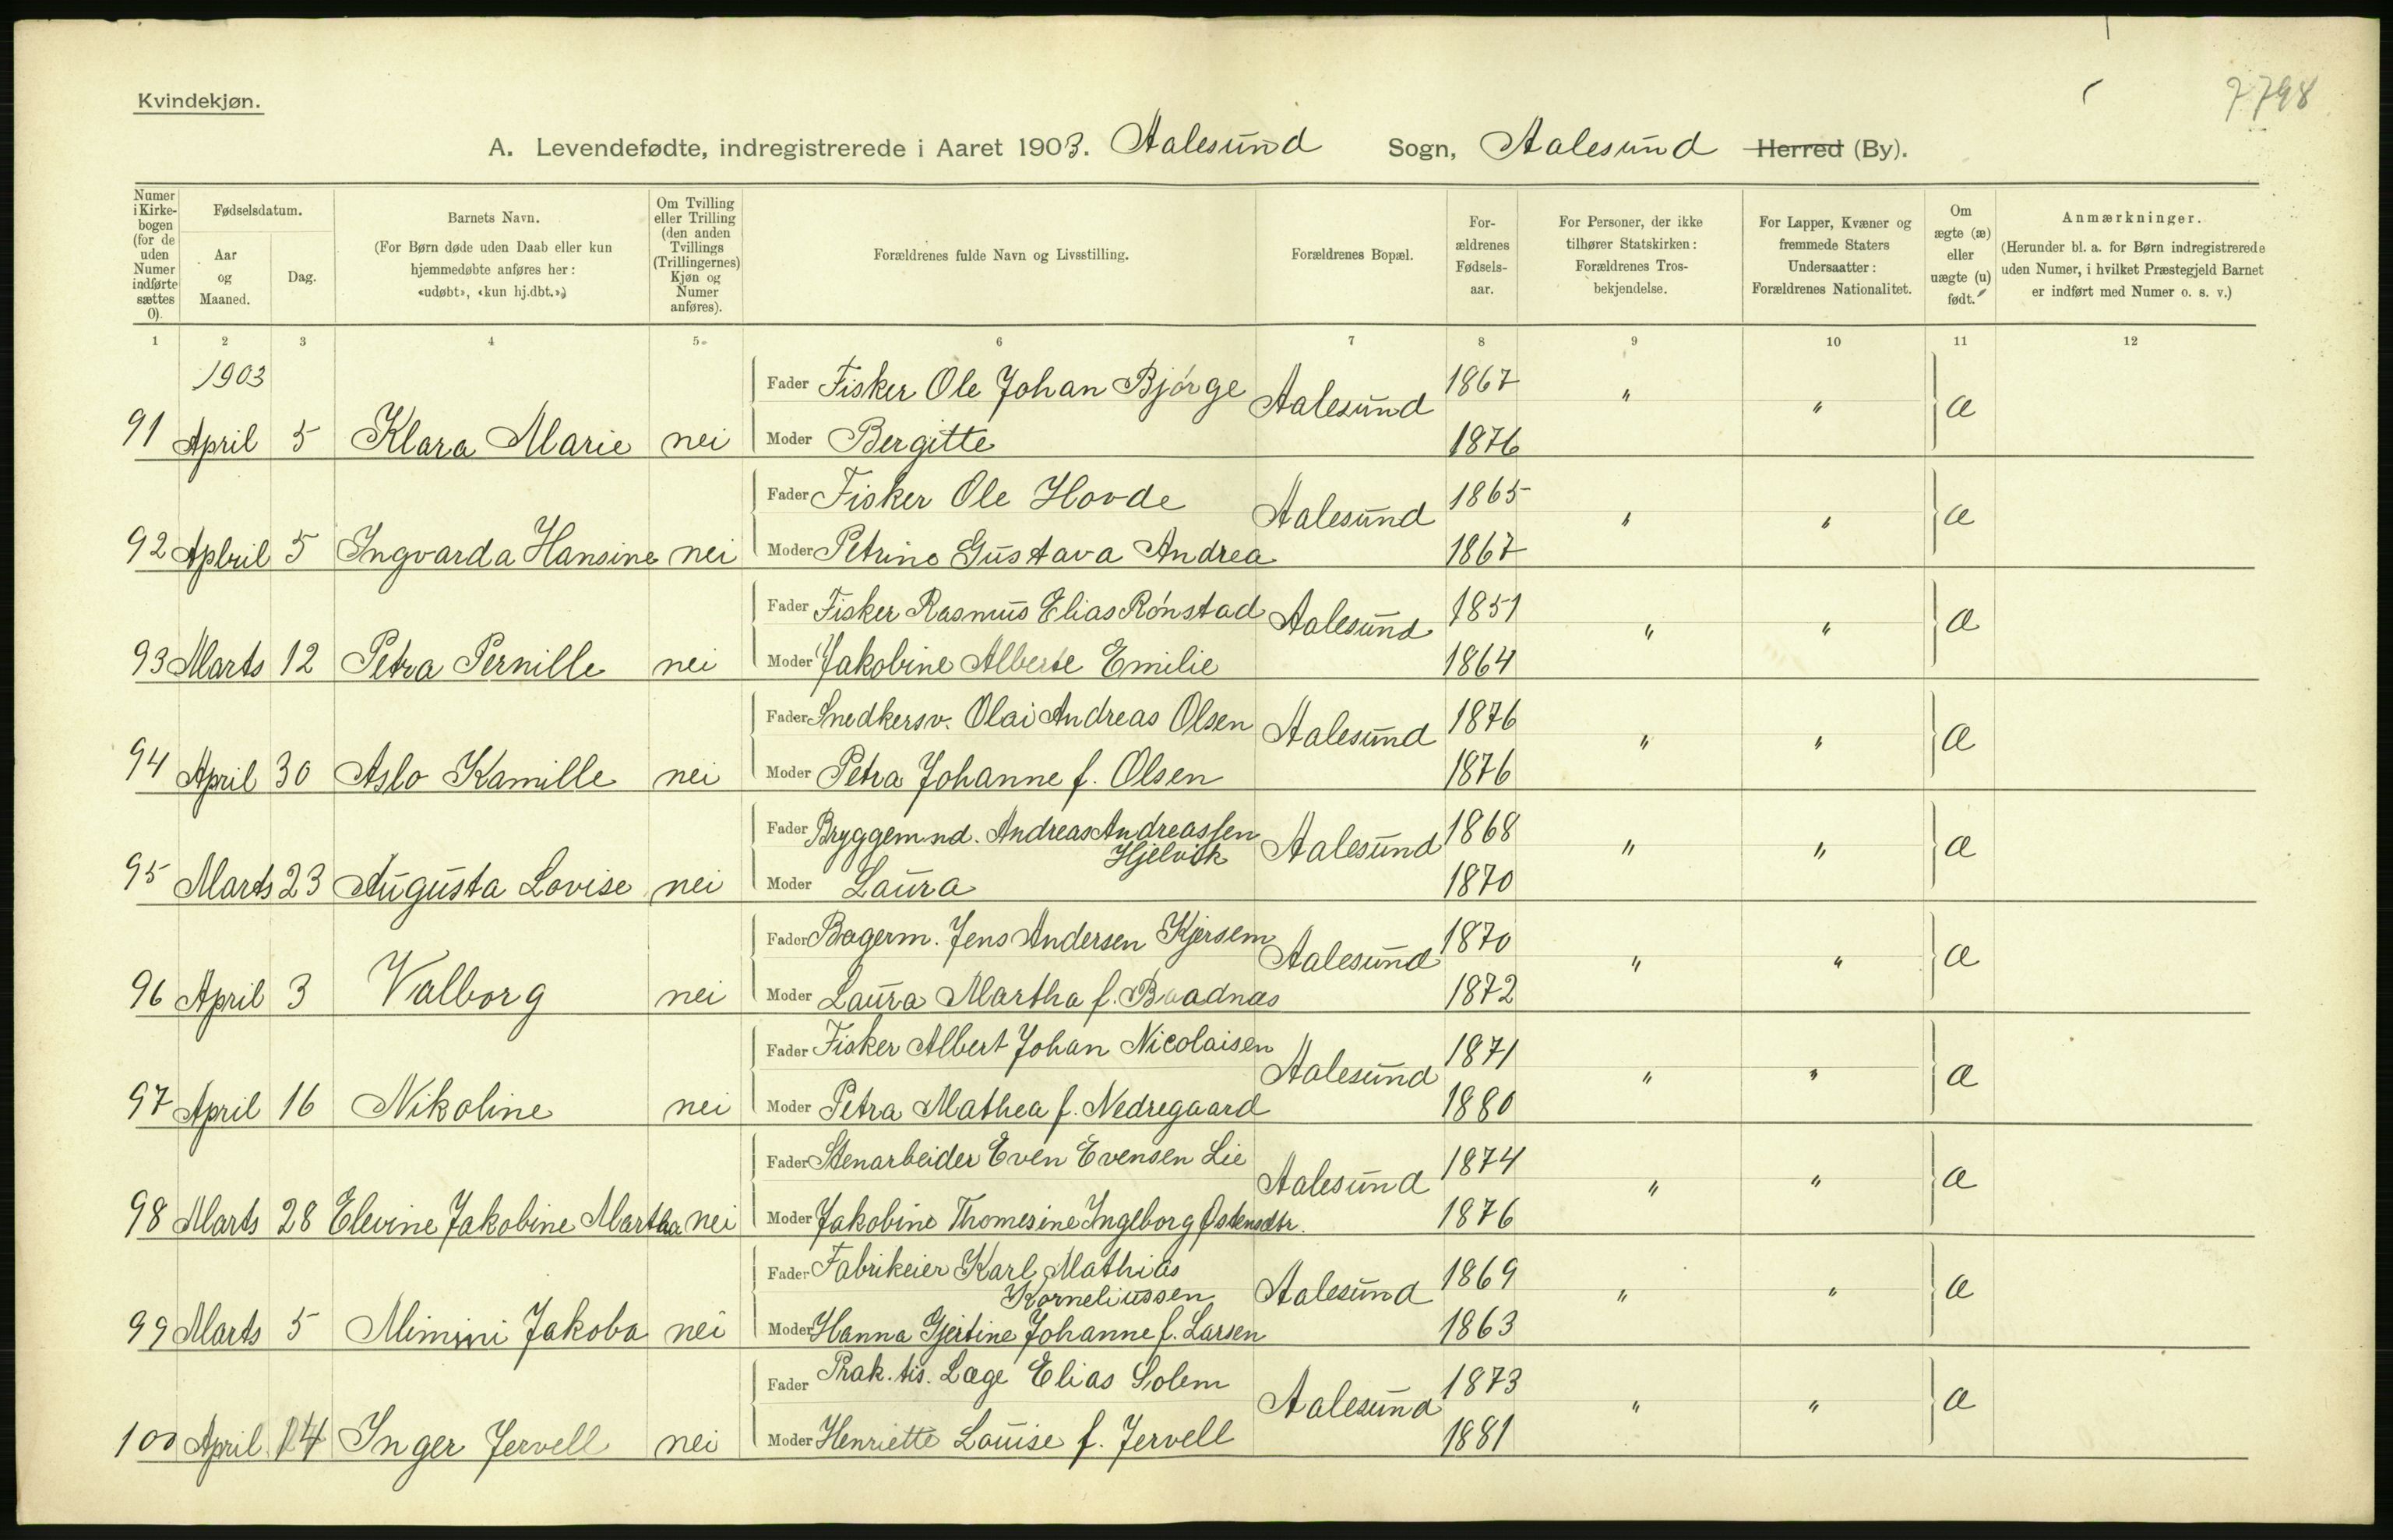 7798
Kvindekjøn.
A. Levendefødte, indregistrerede i Aaret 1903. Aalesund Sogn, Aalesund Herred (By).
Numer i Kirkebogen (for de uden Numer indførte sættes 0).
Fødselsdatum.
Aar og Maaned.
Dag.
Barnets Navn.
(For Børn døde uden Daab eller kun hjemmedøbte anføres her: «udøbt», «kun hj.dbt.».)
Om Tvilling eller Trilling (den anden Tvillings (Trillingernes) Kjøn og Numer anføres).
Forældrenes fulde Navn og Livsstilling.
Forældrenes Bopæl.
Forældrenes Fødselsaar.
For Personer, der ikke tilhører Statskirken: Forældrenes Trosbekjendelse.
For Lapper, Kvæner og fremmede Staters Undersaatter: Forældrenes Nationalitet.
Om ægte (æ) eller uægte (u) født.
Anmærkninger.
(Herunder bl. a. for Børn indregistrerede uden Numer, i hvilket Præstegjeld Barnet er indført med Numer o. s. v.)
1 2 3 4 5 6 7 8 9 10 11 12
1903
Fader Fisker Ole Johan Bjørge Aalesund 1867 " " æ
91 April 5 Klara Marie nei Moder Bergitte 1876
Fader Fisker Ole Hovde Aalesund 1865 " " æ
92 Aplril 5 Ingvarda Hansine nei Moder Petrine Gustava Andrea 1867
Fader Fisker Rasmus Elias Rønstad Aalesund 1851 " " æ
93 Marts 12 Petra Pernille nei Moder Jakobine Alberte Emilie 1864
Fader Snedkersv. Olai Andreas Olsen Aalesund 1876 " " æ
94 April 30 Aslo Kamille nei Moder Petra Johanne f. Olsen 1876
Fader Bryggemnd. Andreas Andreassen Aalesund 1868 " " æ
Hjelvik
95 Marts 23 Augusta Lovise nei Moder Laura 1870
Fader Bagerm. Jens Andersen Kjersem Aalesund 1870 " " æ
96 April 3 Valborg nei Moder Laura Martha f. Baadnas 1872
Fader Fisker Albert Johan Nicolaisen Aalesund 1871 " " æ
97 April 16 Nikoline nei Moder Petra Mathea f. Nedregaard 1880
Fader Stenarbeider Even Evensen Lie Aalesund 1874 " " æ
98 Marts 28 Elevine Jakobine Martha nei Moder Jakobine Thomesine Ingeborg Østensdtr. 1876
Fader Fabrikeier Karl Mathias Aalesund 1869 " " æ
Korneliussen
99 Marts 5 Mimini Jakoba nei Moder Hanna Gjertine Johanne f. Larsen 1863
Fader Prak. tis. Læge Elias Solem Aalesund 1873 " " æ
100 April 14 Inger Jervell nei Moder Henriette Louise f. Jervell 1881